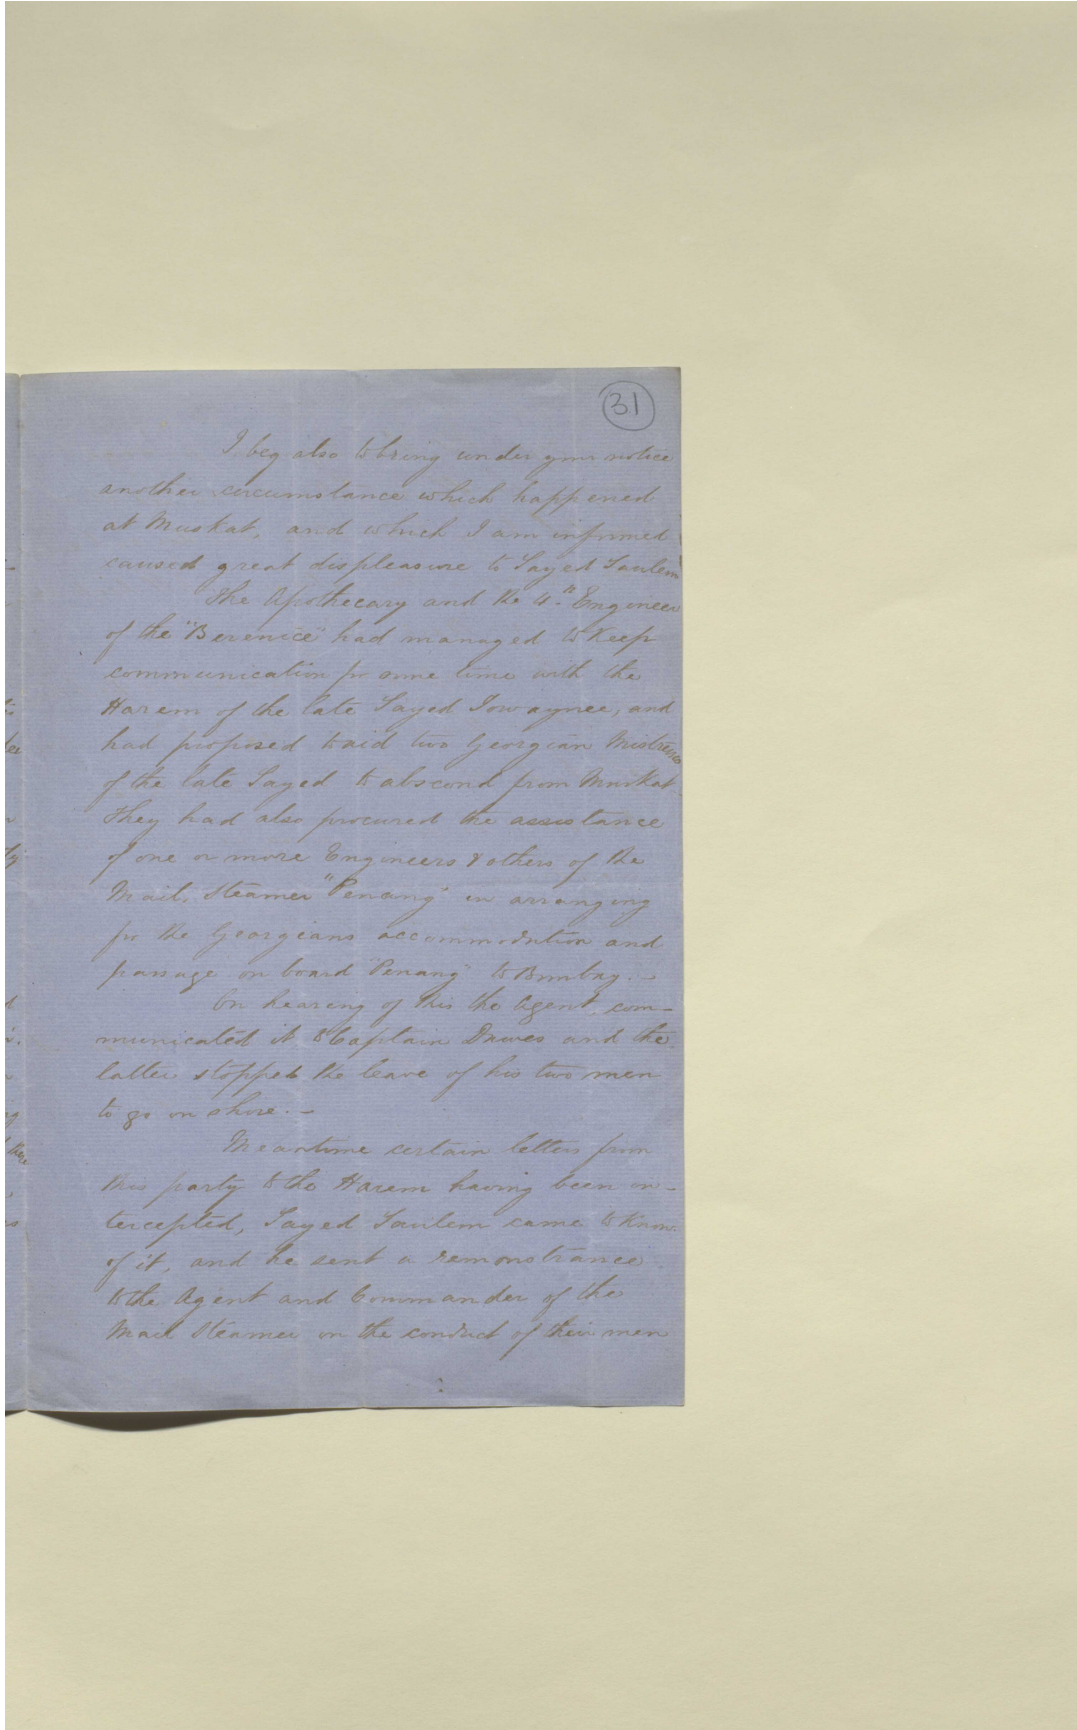 31
I beg also to bring under your notice
another circumstance which happened
at Muskat, and which I am informed
caused great displeasure to Sayed Saulem
The Apothecary and the 4th Engineer
of the "Berenice" had managed to keep
communication for some time with the
Harem of the late Sayed Sowaynee, and
had proposed to aid two Georgian Mistresses
of the late Sayed to abscond from Muskat.
They had also procured the assistance
of one or more Engineers & others of the
Mail Steamer "Penang" in arranging
for the Georgians accommodation and
passage on board "Penang" to Bombay. —
On hearing of this the Agent com-
municated it to Captain Dawes and the
latter stopped the leave of his two men
to go on shore. —
Meantime certain letters from
this party to the Harem having been in-
tercepted, Sayed Saulem came to know
of it, and he sent a remonstrance
to the Agent and Commander of the
Mail Steamer on the conduct of their men